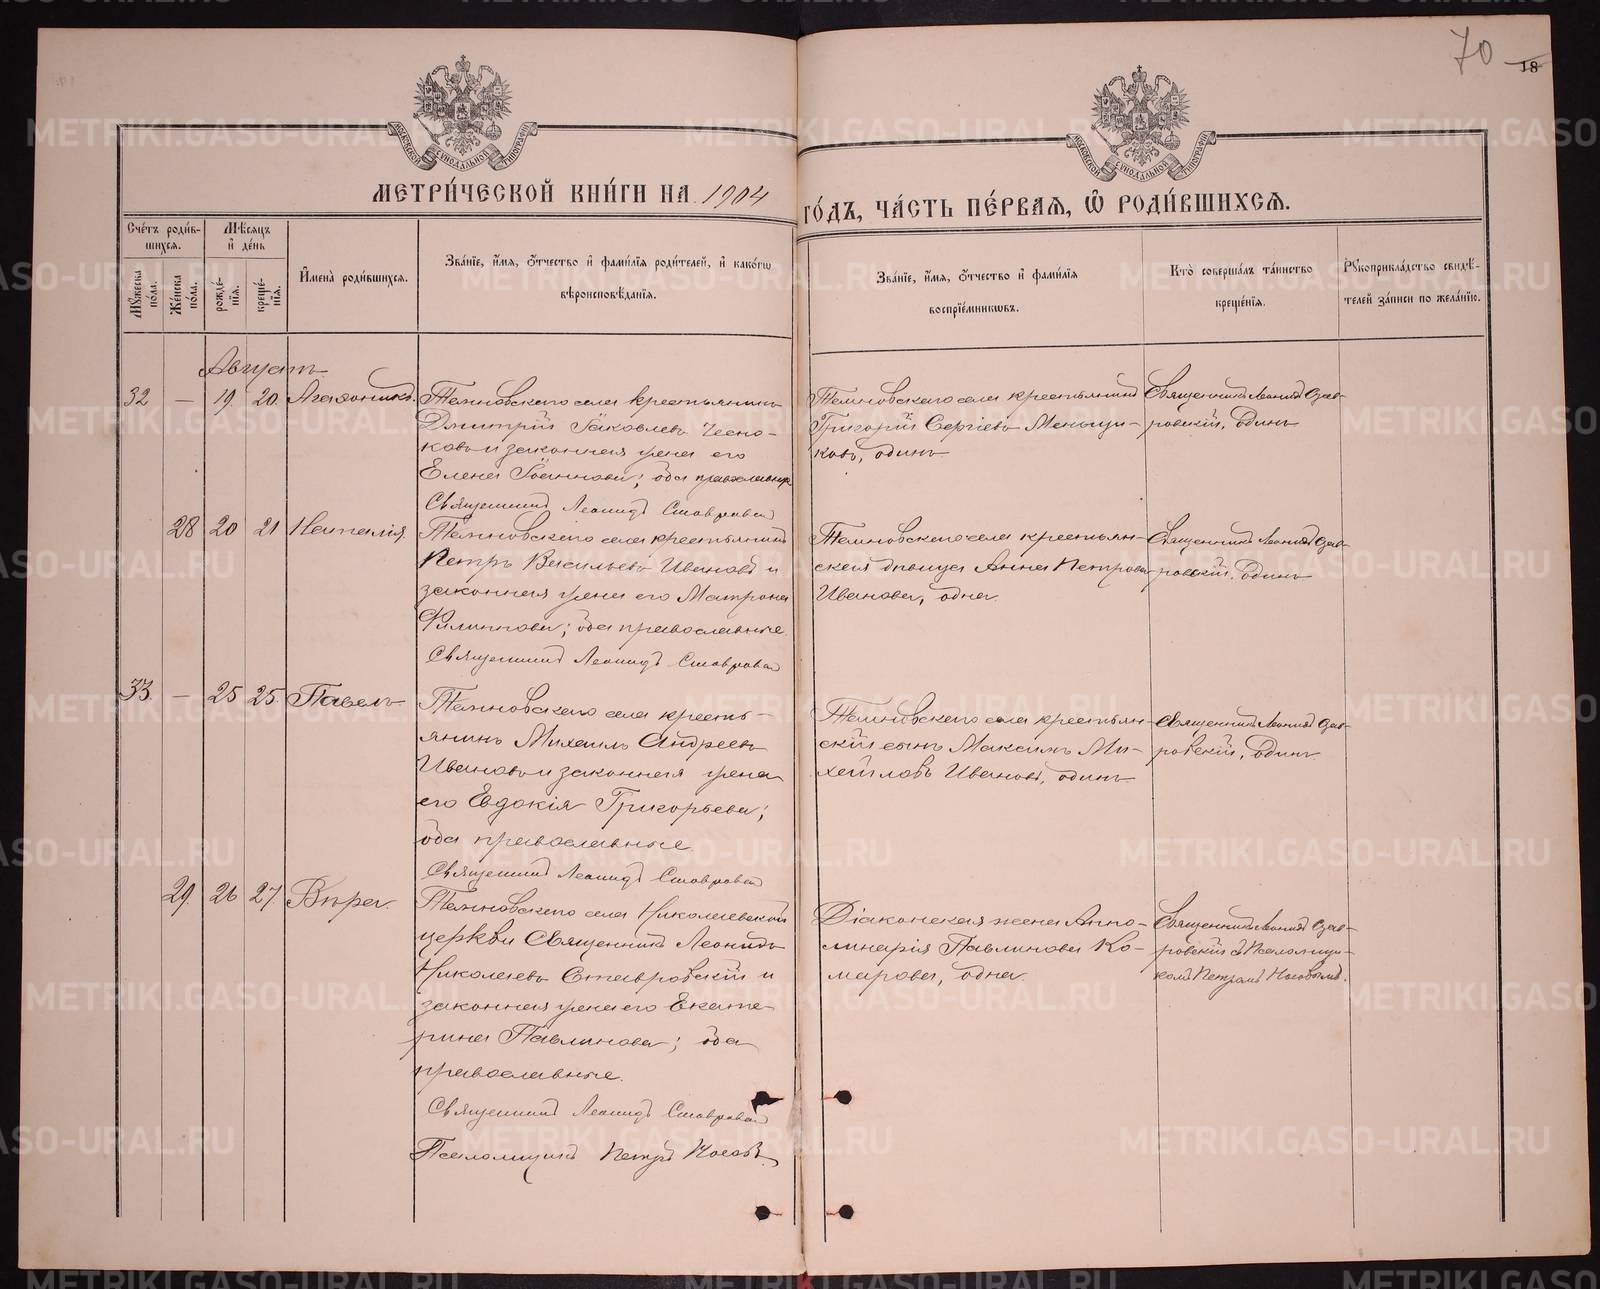 70
18
МЕТРИ́ЧЕСКОЙ КНИ́ГИ НА 1904 ГО́ДЪ, ЧА́СТЬ ПЕ́РВАЯ, Ѡ РОДИ́ВШИХСЯ.
МОСКОВСКОЙ СѴНОДАЛЬНОЙ ТИПОГРАФІИ
МОСКОВСКОЙ СѴНОДАЛЬНОЙ ТИПОГРАФІИ
Сче́тъ роди́в-
шихся.
Мѣ́сяцъ
и де́нь
Му́жеска
пола.
Же́нска
по́ла.
рожде́-
нія.
креще́-
нія.
Имена̀ роди́вшихся.
Зва́ніе, и́мя, о́тчество и фами́лія роди́телей, и како́гѡ
вѣроисповѣ́данія.
Зва́ніе, и́мя, о́тчество и фами́лія
воспріе́мниковъ.
Кто̀ соверша́лъ та́инство
креще́нія.
Рукоприкла́дство свидѣ́-
телей за́писи по жела́нію.
Августъ
32 — 19 20 Агаѳоникъ.
Темновскаго села крестьянинъ
Дмитрій Іаковлевъ Чесно-
ковъ и законная жена его
Елена Іоаннова; оба православн.
Священникъ Леонидъ Ставровскій
Темновскаго села крестьянинъ
Григорій Сергіевъ Меньщи-
ковъ, одинъ.
Священникъ Леонидъ Став-
ровскій, одинъ
28 20 21 Наталія.
Темновскаго села крестьянинъ
Петръ Васильевъ Ивановъ и
законная жена его Матрона
Филиппова; оба православные.
Священникъ Леонидъ Ставровскій
Темновскаго села крестьян-
ская дѣвица Анна Петрова
Иванова, одна.
Священникъ Леонидъ Став-
ровскій, одинъ
33. — 25 25. Павелъ
Темновскаго села кресть-
янинъ Михаилъ Андреевъ
Ивановъ и законная жена
его Евдокія Григорьева;
оба православные.
Священникъ Леонидъ Ставровскій
Темновскаго села крестьян-
скій сынъ Максимъ Ми-
хайловъ Ивановъ, одинъ.
Священникъ Леонидъ Став-
ровскій, одинъ
29. 26 27 Вѣра.
Темновскаго села Николаевской
церкви Священникъ Леонидъ
Николаевъ Ставровскій и
законная жена его Екате-
рина Павлинова; оба
православные.
Священникъ Леонидъ Ставровскій
Псаломщикъ Петръ Носовъ.
Діаконская жена Аппо-
линарія Павлинова Ко-
марова, одна.
Священникъ Леонидъ Став-
ровскій съ Псаломщи-
комъ Петромъ Носовымъ.
METRIKI.GASO-URAL.RU